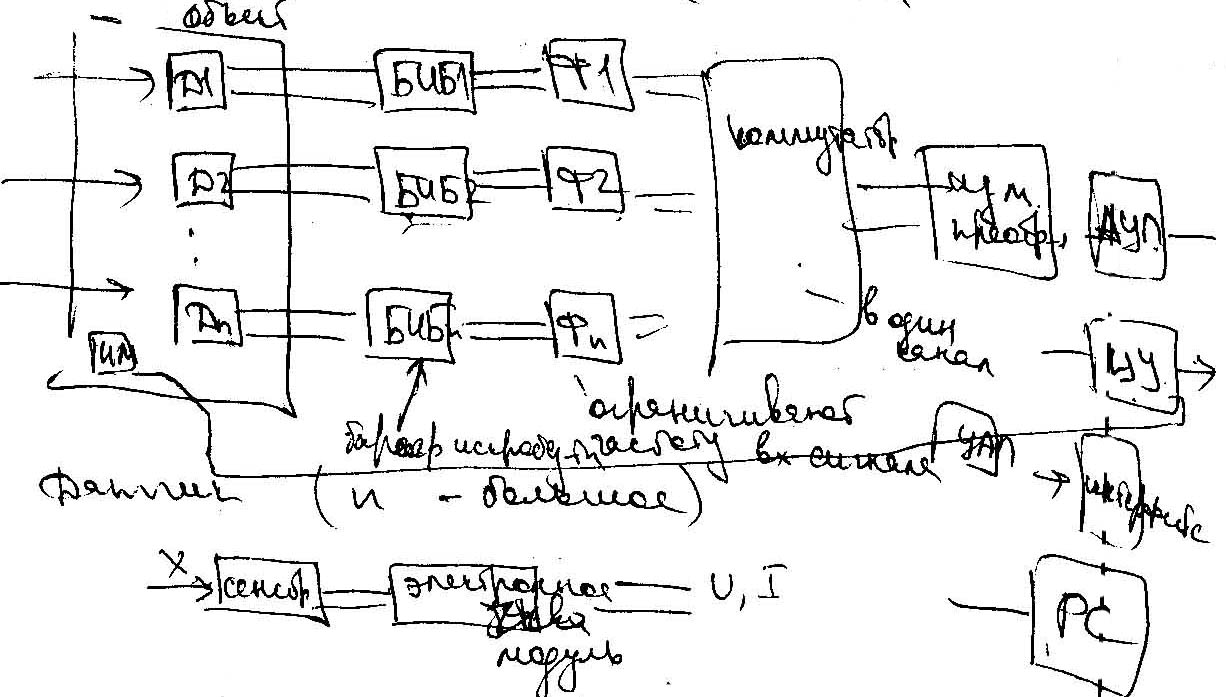 объект
Д1 БИБ1 Ф1
коммутатор
Д2 БИБ2 Ф2
изм.
преобр. АЦП
Дn БИБn Фn
в один
канал
ИМ
ЦУ
ограничивают
барьер частоту вх сигнала ЦАП
Датчик (n - большое)
интерфейс
X сенсор электронное U, I
модуль
PC